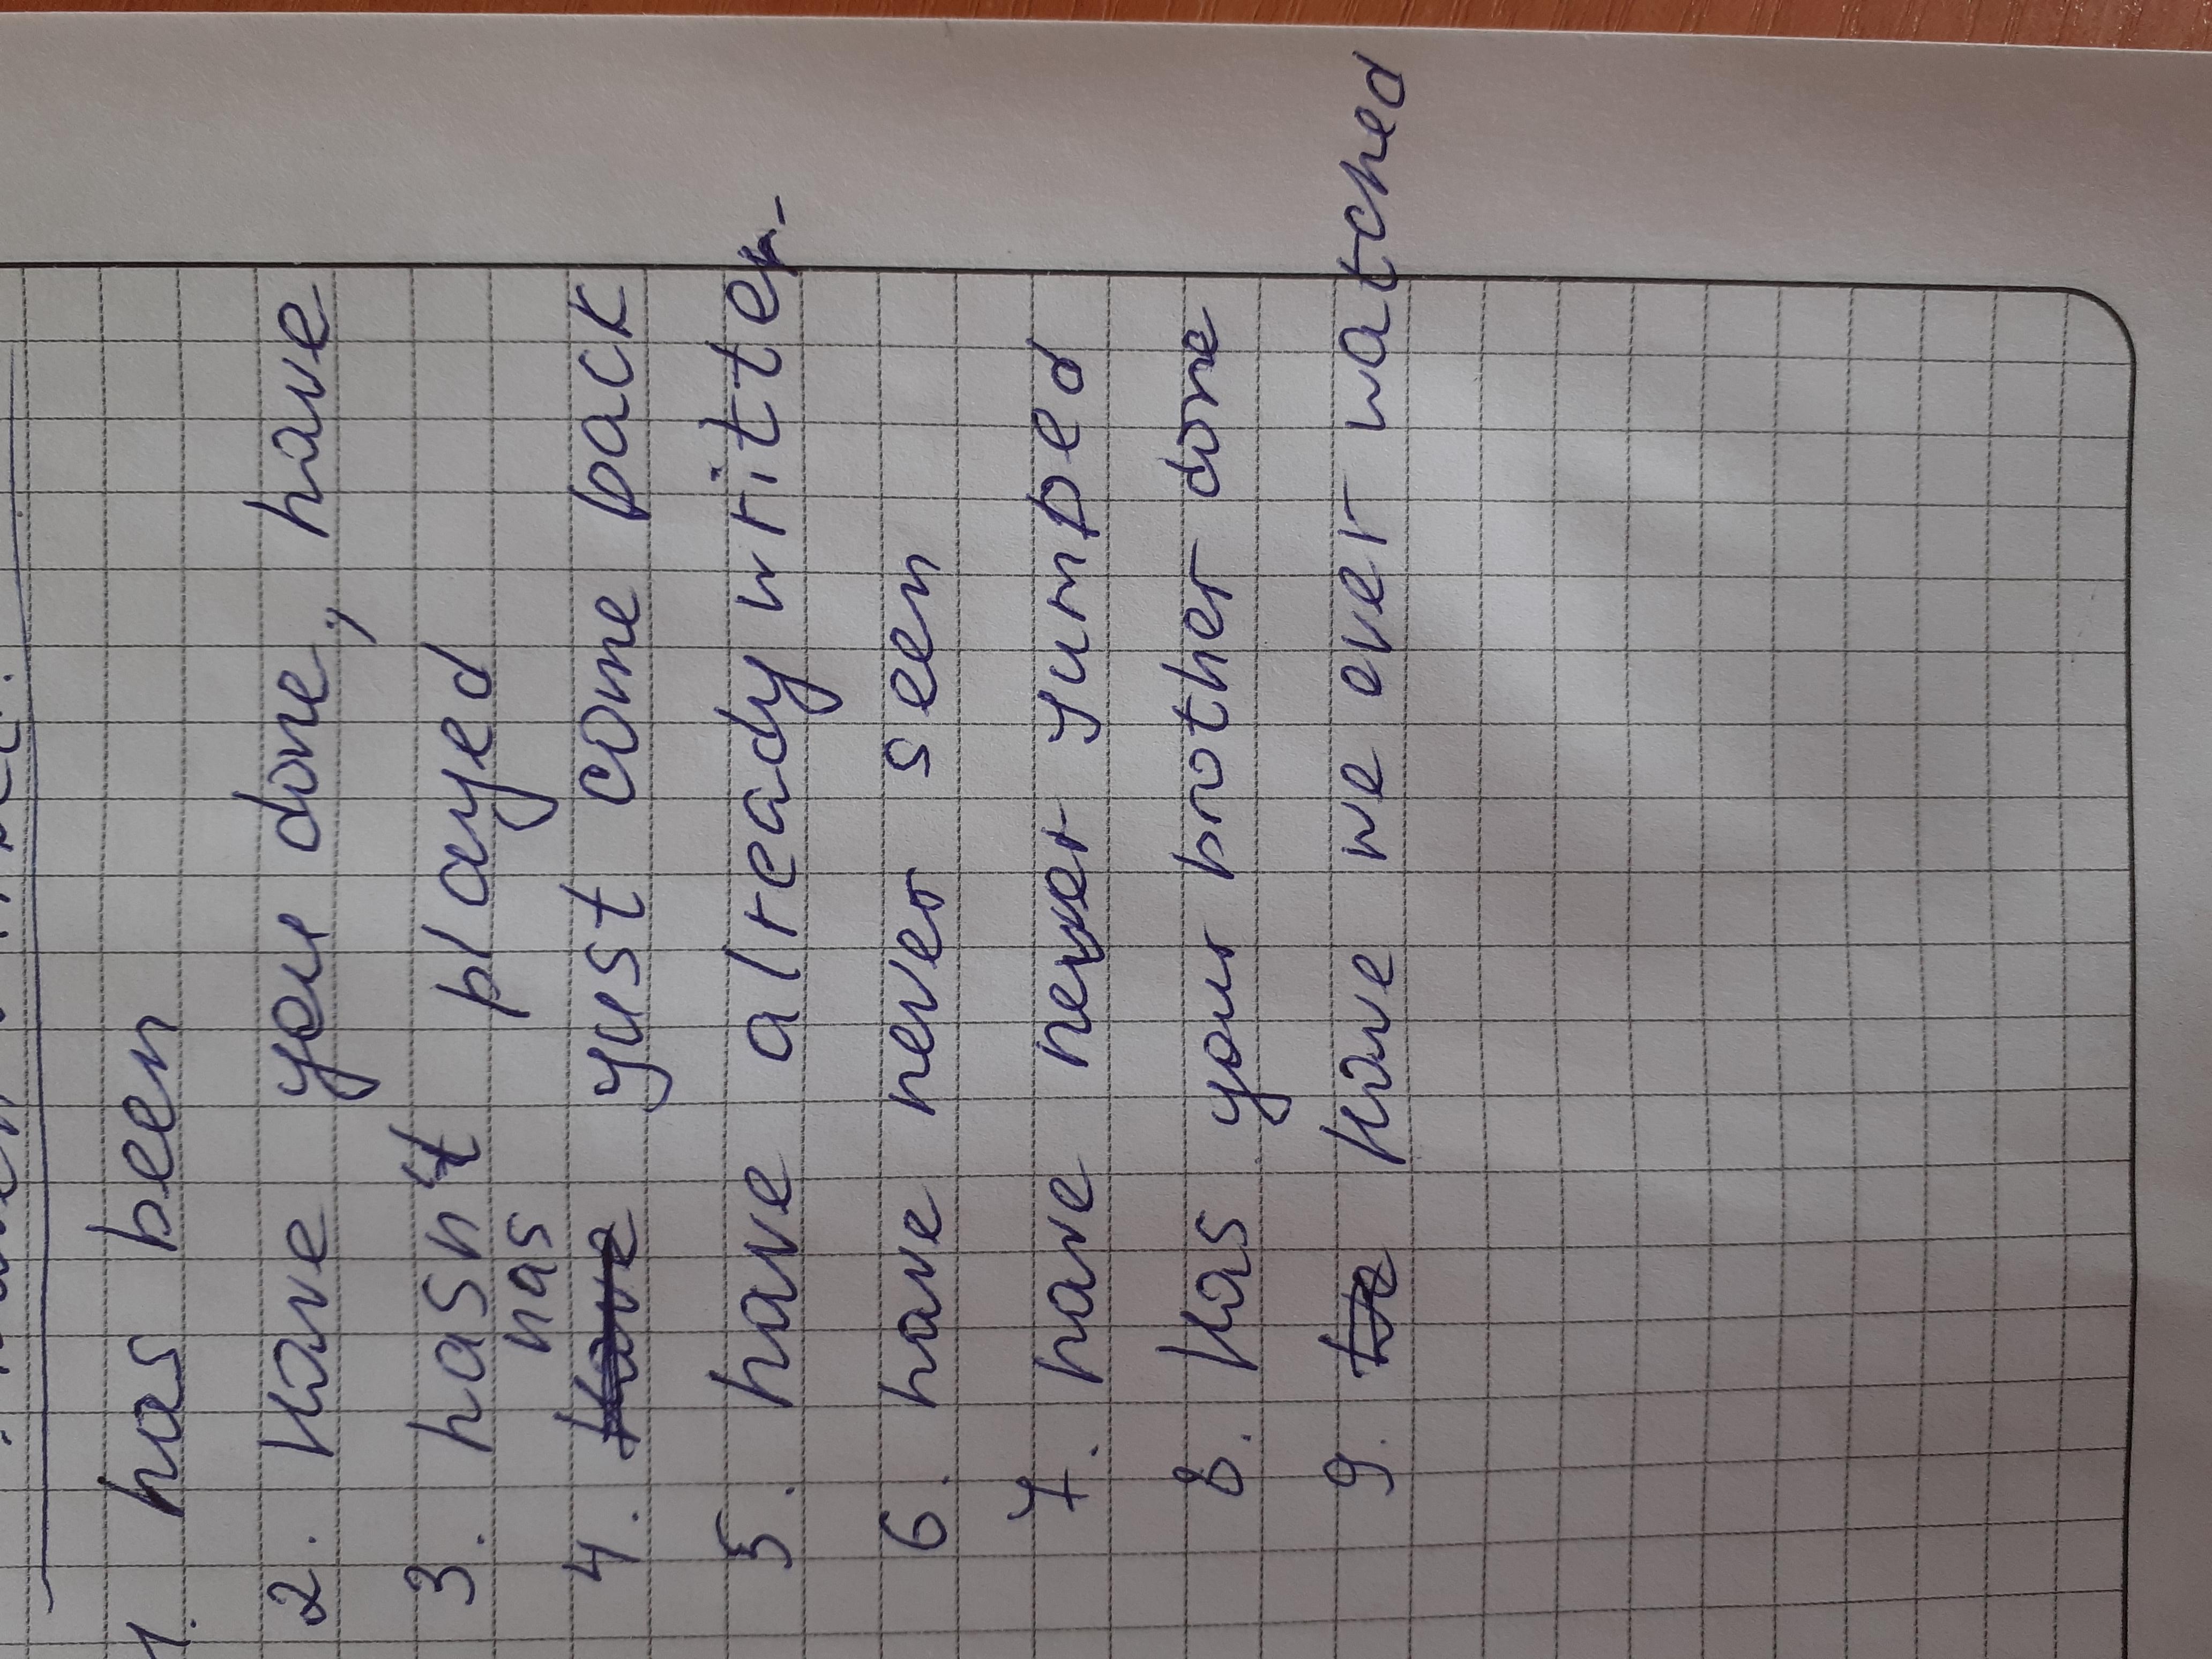 1. has been
2. Have you done, have
3. hasn't played
has
4. yust come back
5. have already written
6. have never seen
7. have never yumped
8. Has your brother done
9. Have we ever watched